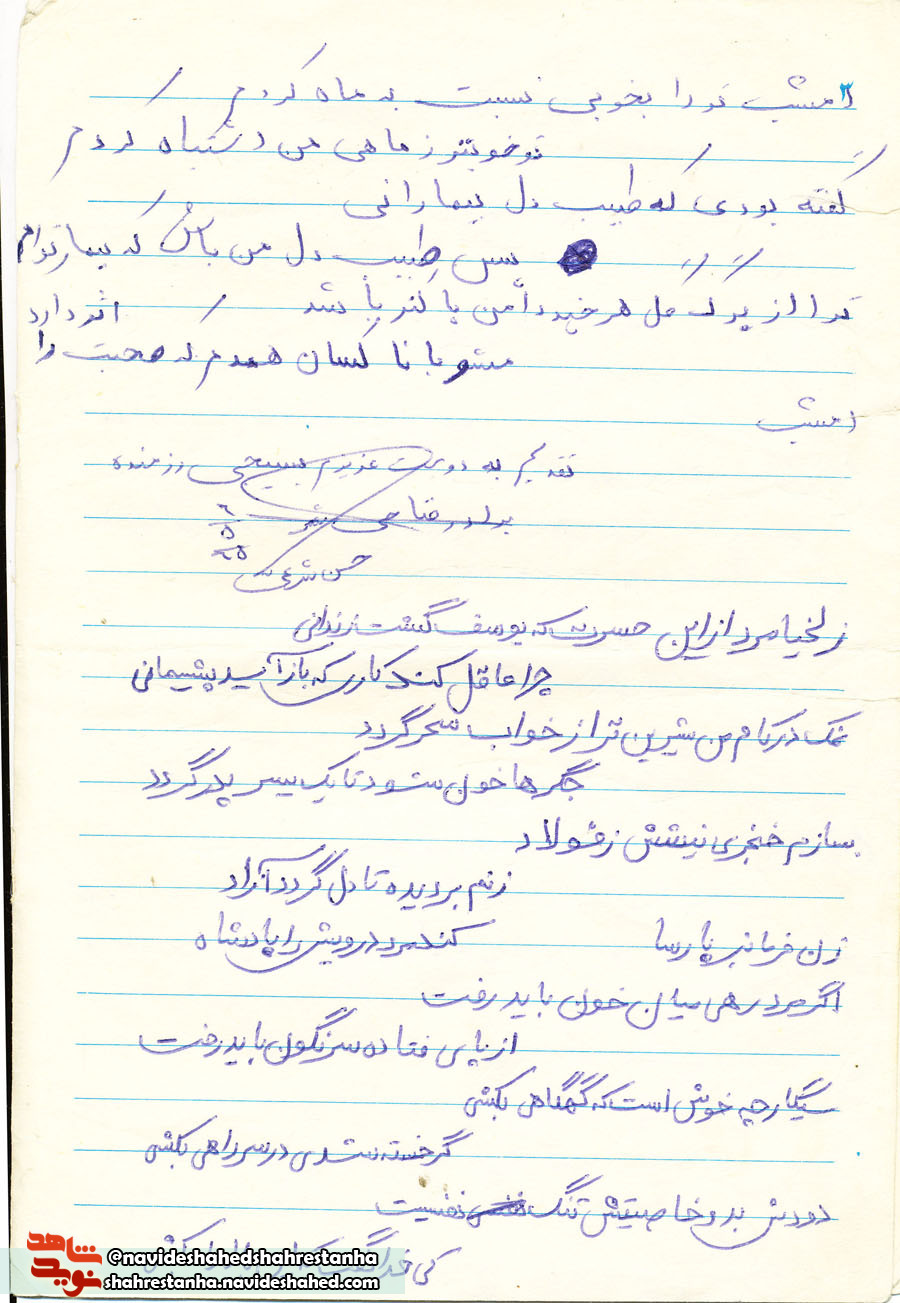 امشب تو را بخوبی نسبت به ماه کردم
تو خوبتر ز ماهی من اشتباه کردم
گفته بودی که طبیب دل بیمارانی
پس طبیب دل من باش که بیمار توام
ترا از برگ گل هر چند دامن پاکتر باشد
مشو با نا کسان همدم که صحبت را اثر دارد
امشب
تقدیم به دوست عزیزم بسیجی رزمنده
برادر
حسن
زلخیا مرد از این حسرت که یوسف گشت زندانی
چرا عاقل کند کاری که باز آید پشیمانی
نمک در کام من شیرین تر از خواب سحر گردد
جگرها خون شود تا یک پسر پدر گردد
بسازم خنجری نیشش ز فولاد
زنم بر دیده تا دل گردد آزاد
زن فرمانبر پارسا کند مرد درویش را پادشاه
اگر مرد رهی میان خون باید رفت
از پای فتاده سرنگون باید رفت
سیگار چه خوش است که گهگاهی بکشی
گر خسته شدی در سر راهی بکشی
دودش بد و خاصیتش تنگ نفسیت
کی
شاهد
نوید
@navideshahedshahrestanha
shahrestanha.navideshahed.com